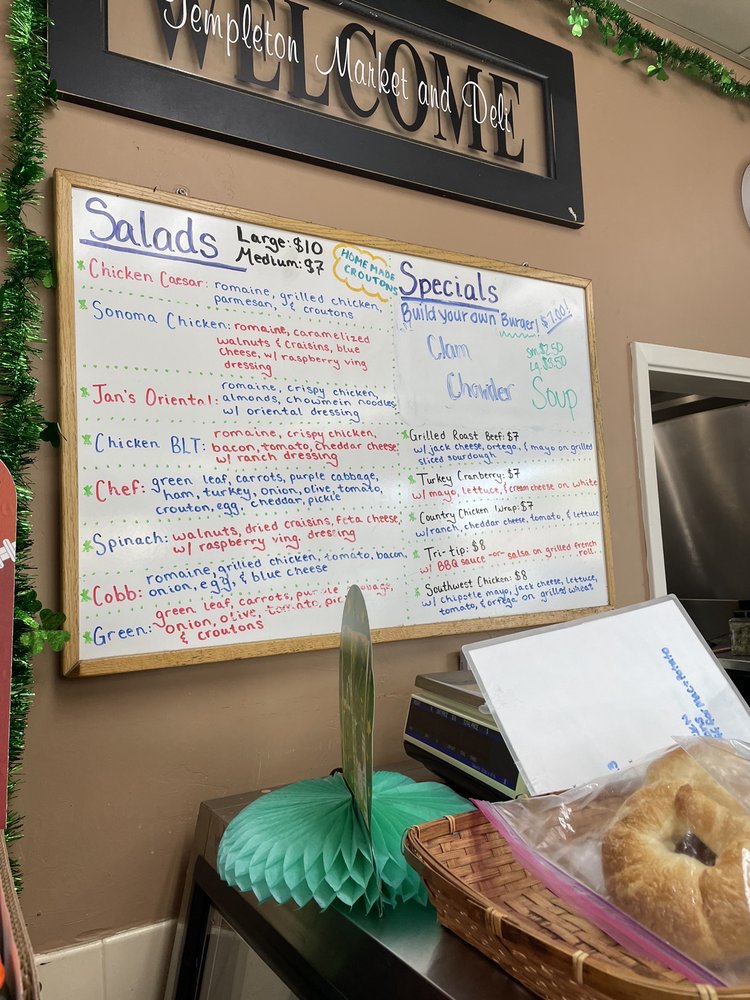 WELCOME
Templeton Market and Deli
Salads
Large: $10
Medium: $7
HOMEMADE
CROUTONS
Chicken Caesar: romaine, grilled chicken,
parmesan, & croutons
Sonoma Chicken: romaine, caramelized
walnuts & craisins, blue
cheese, w/ raspberry ving
dressing
Jan's Oriental: romaine, crispy chicken,
almonds, chowmein noodles,
w/ oriental dressing
Chicken BLT: romaine, crispy chicken,
bacon, tomato, cheddar cheese
w/ ranch dressing
Chef: green leaf, carrots, purple cabbage,
ham, turkey, onion, olive, tomato,
crouton, egg, cheddar, pickle
Spinach: walnuts, dried craisins, feta cheese,
w/ raspberry ving. dressing
Cobb: romaine, grilled chicken, tomato, bacon,
onion, egg, & blue cheese
Green: green leaf, carrots, purple cabbage,
onion, olive, tomato,
& croutons
Specials
Build your own Burger! $7.00!
Clam
Chowder
sm. $2.50
Lg. $3.50
Soup
Grilled Roast Beef: $7
w/ jack cheese, ortega, & mayo on grilled
sliced sourdough
Turkey Cranberry: $7
w/ mayo, lettuce, & cream cheese on white
Country Chicken Wrap: $7
w/ ranch, cheddar cheese, tomato, & lettuce
Tri-tip: $8
w/ BBQ sauce -or- salsa on grilled french
roll.
Southwest Chicken: $8
w/ chipotle mayo, jack cheese, lettuce,
tomato, & ortega on grilled wheat